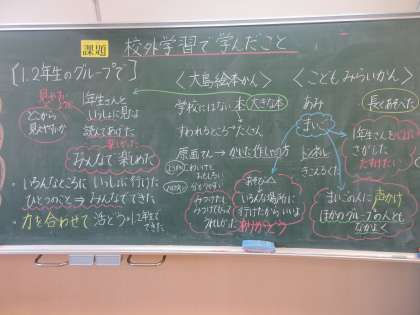 課題
校外学習で学んだこと
[1.2年生のグループで]
見やすいように
どこから
見やすいか
1年生さんと
いっしょに見な
読んであげた
楽しかった
みんなで楽しめた
・いろんなところにいっしょに行けた
ひとつのこと→みんなでできた
・力を合わせて活どう。1.2年生で
できた
〈大島絵本かん〉
学校にはない本 大きな本
すわれるところたくさん
原画さん→かいた作しゃの方
こわい
おもしろい
分かりやすい
みつけたら
うれしかった
あそび
いろんな場所に
行けたからいいよ
ありがとう
〈こどもみらいかん〉
あみ
まいご
トンネル
きんろくた
長くあそべた
1年生さんを
さがした
たすけたい
まいごの人に声かけ
ほかのグループの人とも
なかよく